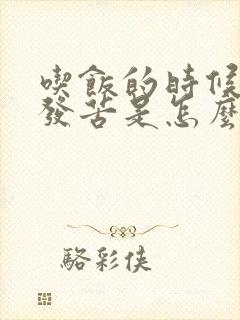 喫飯的時候
發苦是怎麼
駱彩俠